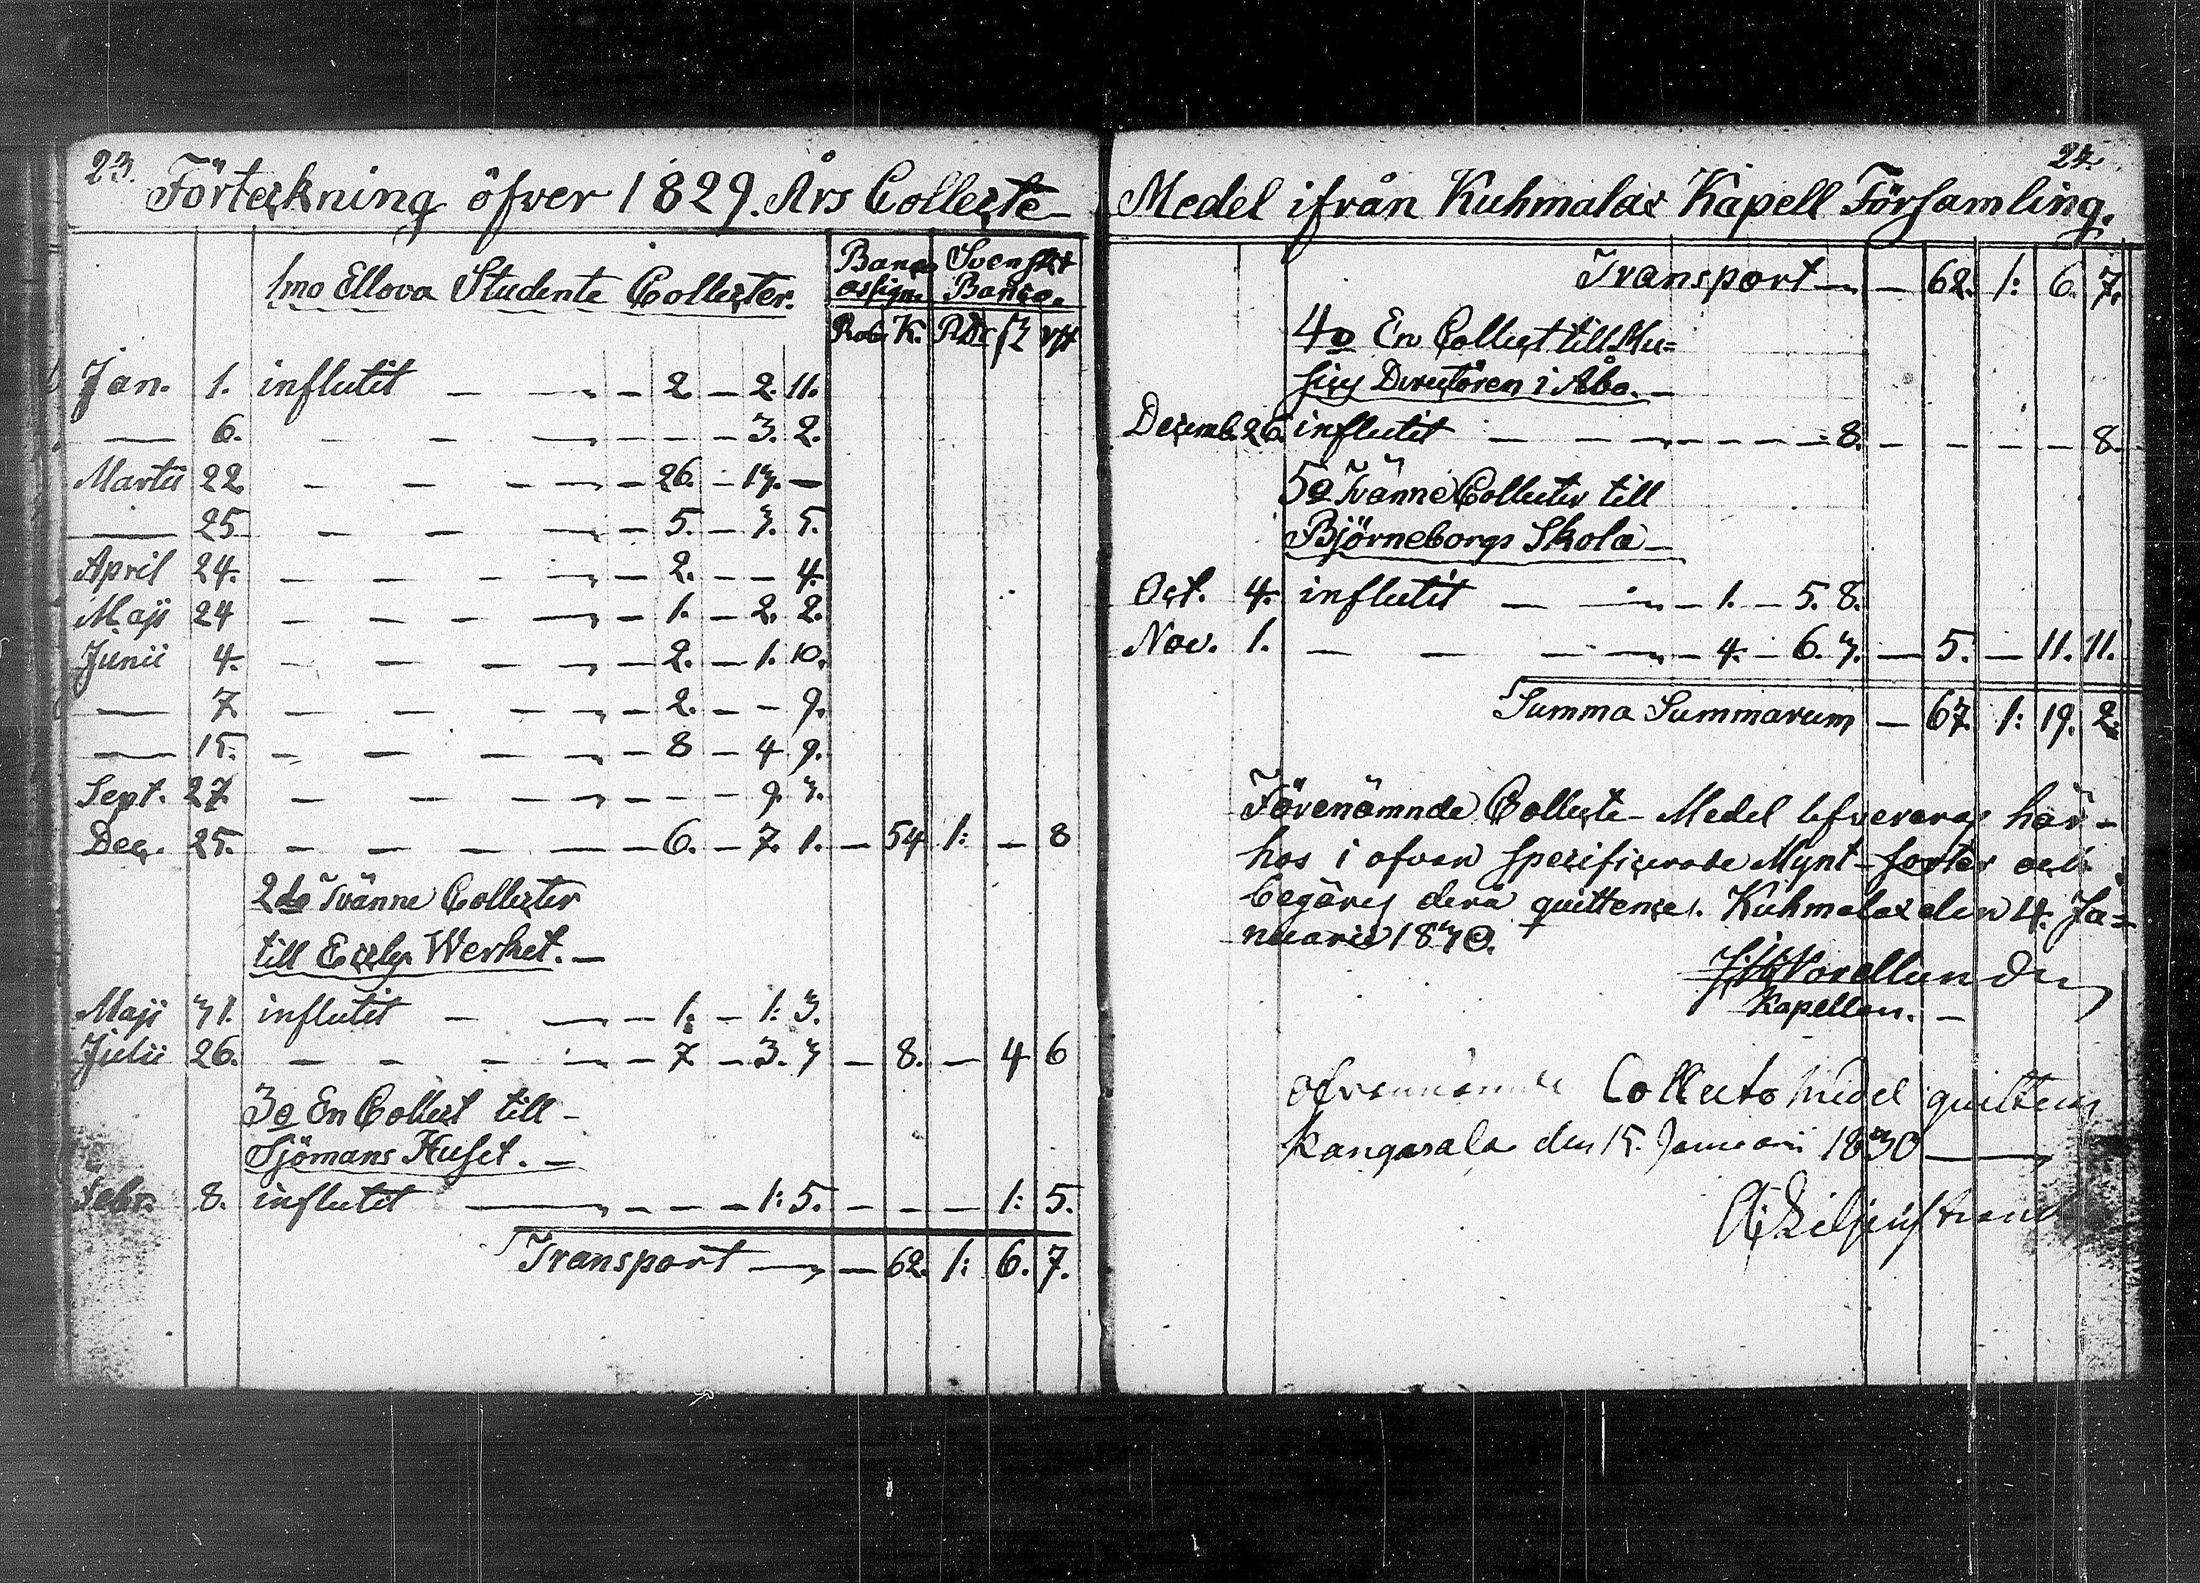 23.
Förteckning öfver 1829. Års Collecte-
1mo Ellova Studente Collecter.
Banco assign. Svenskt Banco.
Rub. K. Rdr ß rst
Jan. 1. influtit — — — 2 — 2. 11.
— 6. — — — — — — 3. 2.
Martii 22 — — — — — 26. — 13. —
— 25 — — — — — 5. — 3. 5.
April 24. — — — — — 2. — — 4.
Maji 24 — — — — — 1. — 2. 2.
Junii 4. — — — — — 2. — 1. 10.
— 7 — — — — — 2. — — 9.
— 15. — — — — — 8 — 4 9.
Sept. 27. — — — — — — — 9. 3.
Dec. 25. — — — — — 6. — 7. 1. — 54 1: — 8
2do Tvänne Collecter
till Eccles Werket. —
Maji 31. influtit — — — 1: — 1: 3.
Julii 26. — — — — — 7 — 3. 3 — 8. — 4 6
3o En Collect till
Sjömans Huset. —
Febr. 8. influtit — — — — 1: 5. — — — 1: 5.
Transport — — 62. 1: 6. 7.
24.
Medel ifrån Kuhmalax Kapell Församling.
Transport — — 62. 1: 6. 7.
4o En Collect till Mu=
sics Directören i Åbo. —
Decemb. 26. influtit — — — — — — 8. — — — — 8.
5o Tvänne Collecter till
Björneborgs Skola —
Oct. 4. influtit — — — 1. — 5. 8.
Nov. 1. — — — — — 4. — 6. 3. — 5. — 11. 11.
Summa Summarum — 67. 1: 19. 2.
Förenämnde Collecte-Medel lefvereras här-
hos i ofvan specificerade Mynt-sorter och
begäres derå quittence. Kuhmalax den 4. Ja=
nuarii 1830.
Norellund
Kapellan. —
Ofvannämnde Collecto Medel quitteras
Kangasala den 15. Januarii 1830 —